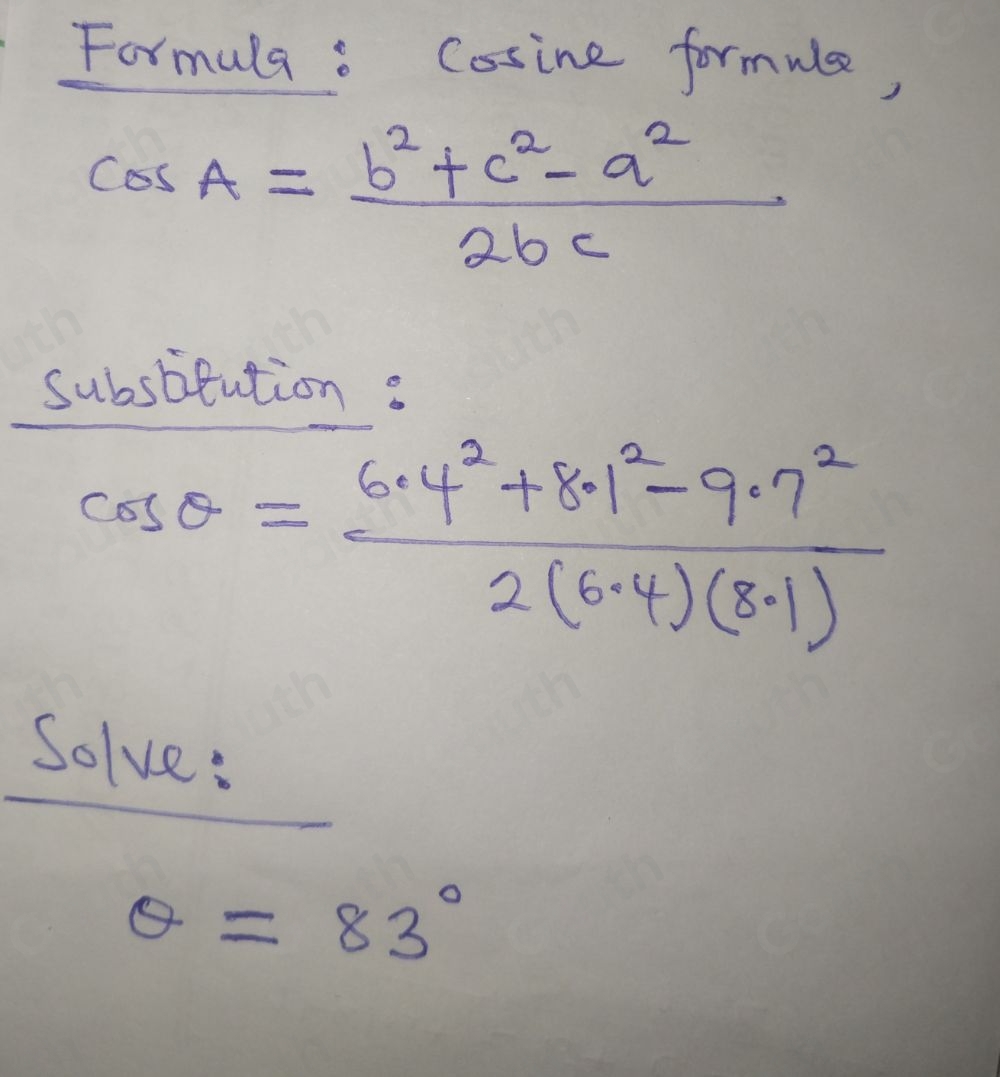 Formula : Cosine formula,
cos A = b² + c² - a² / 2bc
Substitution :
cos θ = 6·4² + 8·1² - 9·7² / 2(6·4)(8·1)
Solve :
θ = 83°